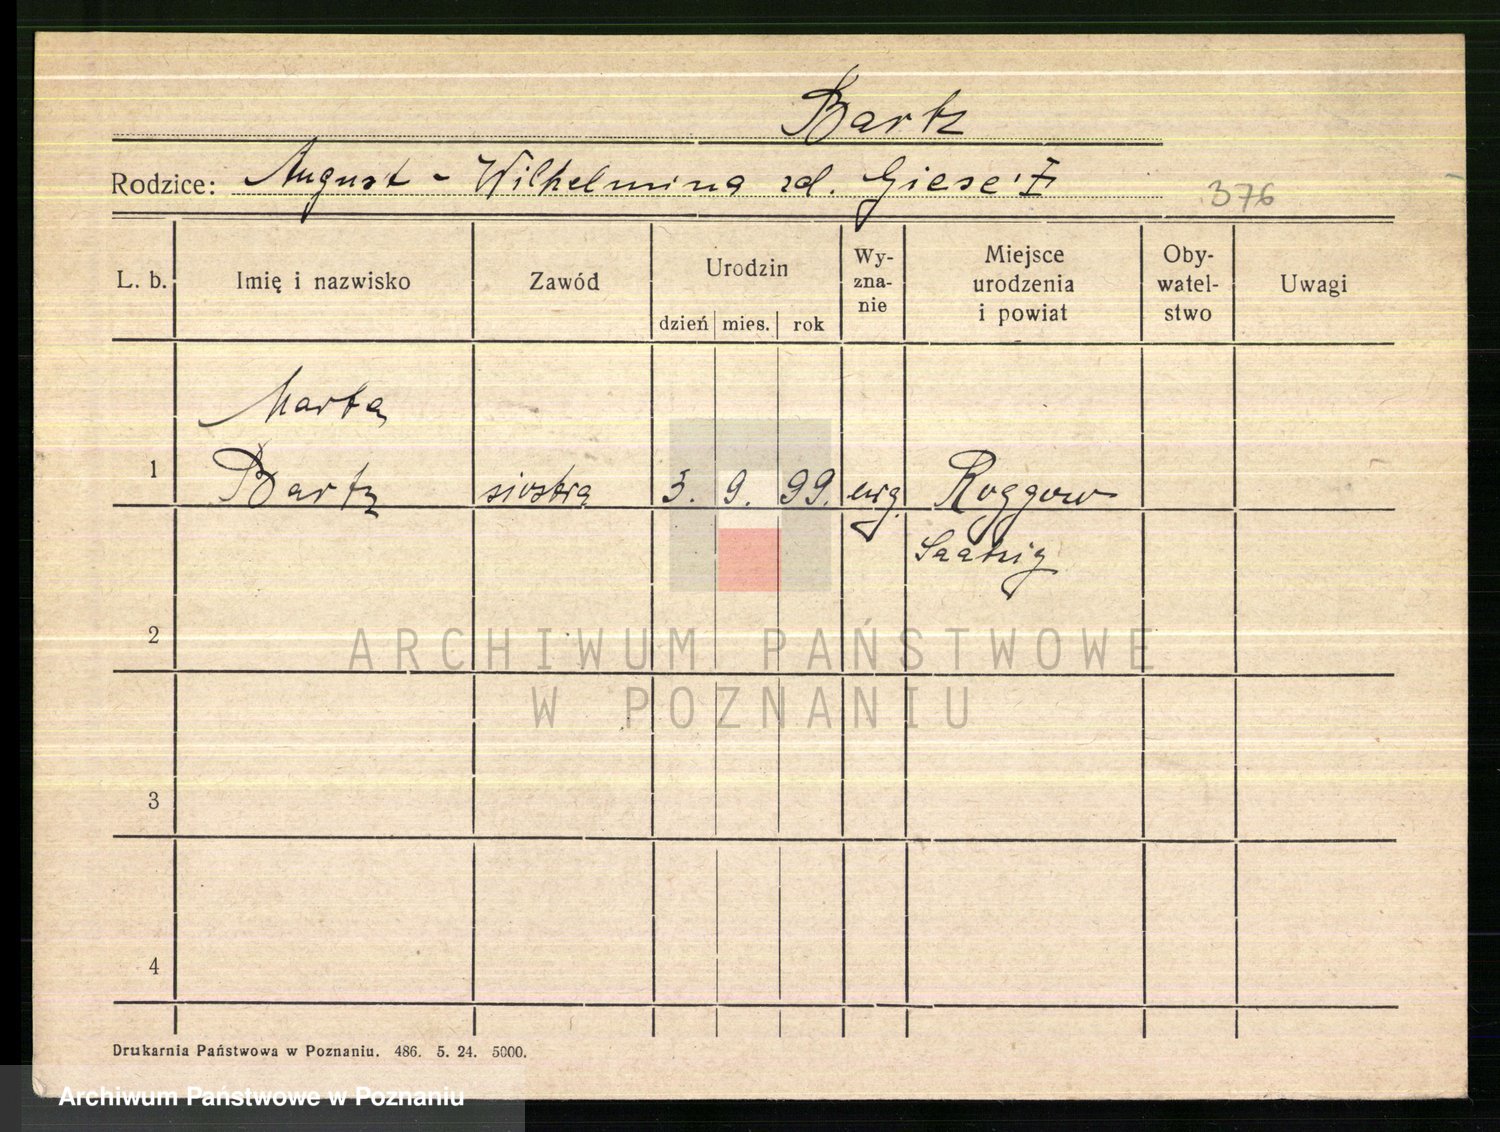 Bartz
Rodzice: August - Wilhelmina zd. Giese'
376
L. b. Imię i nazwisko Zawód Urodzin dzień mies. rok Wy-zna-nie Miejsce urodzenia i powiat Oby-watel-stwo Uwagi
Marta
1 Bartz siostra 3. 9. 99. ewg. Roggow
Saatzig
2
ARCHIWUM PAŃSTWOWE
W POZNANIU
3
4
Drukarnia Państwowa w Poznaniu. 486. 5. 24. 5000.
Archiwum Państwowe w Poznaniu